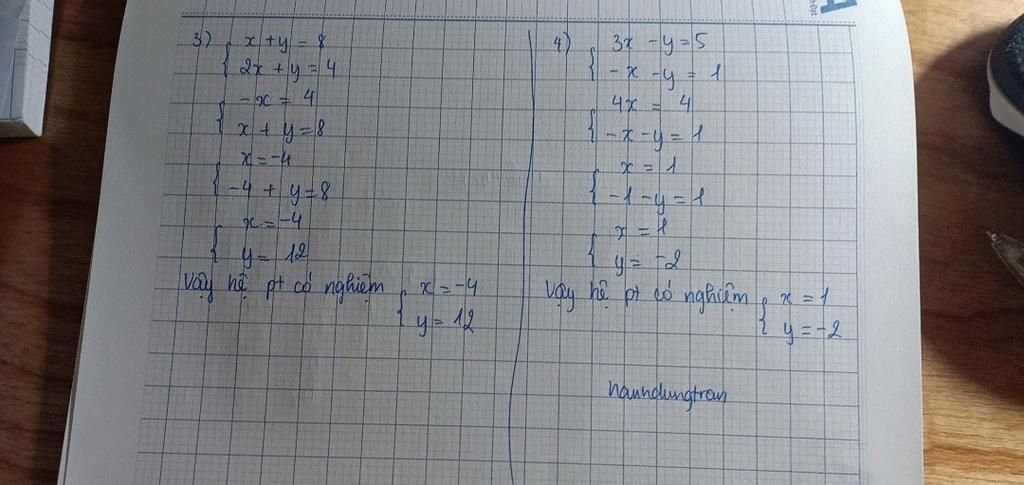 3) { x + y = 8
2x + y = 4
{ -x = 4
x + y = 8
{ x = -4
-4 + y = 8
{ x = -4
y = 12
Vậy hệ pt có nghiệm { x = -4
y = 12
4) { 3x - y = 5
-x - y = 1
{ 4x = 4
-x - y = 1
{ x = 1
-1 - y = 1
{ x = 1
y = -2
Vậy hệ pt có nghiệm { x = 1
y = -2